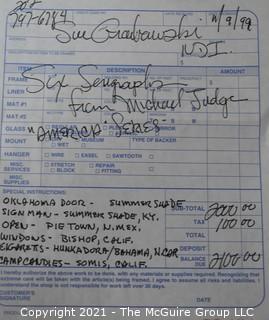 208
797-6784
11/9/99
Sue Grabowski
INDI.
ITEM DESCRIPTION AMOUNT
FRAME Six Serigraphs
LINER
MAT #1 From Michael Judge
MAT #2
GLASS "AMERICA" SERIES
MOUNTING
WET MUSEUM TYPE OF BACKER
HANGER WIRE EASEL SAWTOOTH
MISC. SERVICES STRETCH REPAIR
BLOCK FITTING
MISC. SUPPLIES
SPECIAL INSTRUCTIONS:
OKLAHOMA DOOR - SUMMER SHADE
SIGN MAN - SUMMER SHADE, KY. SUB-TOTAL 2000.00
OPEN - PIE TOWN, N.MEX. TAX 100.00
WINDOWS - BISHOP, CALIF. DEPOSIT
CIGARETS - HUNKADORA/BAHAMA, N.CAR BALANCE DUE 2100.00
CAMPCANDLES - SOMIS, CALIF.
I hereby authorize the above work to be done, with any materials or supplies required. Recognizing that
extreme care will be taken with the articles being framed, I agree to assume all risks and liabilities.
The shop is not responsible for work left over 30 days.
CUSTOMER'S SIGNATURE
DATE
Copyright 2021 - The McGuire Group/